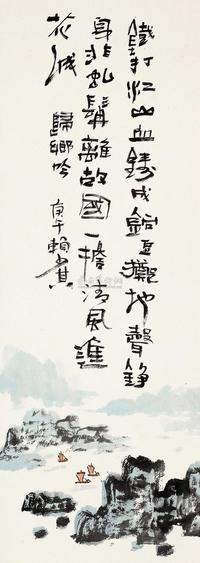 鐵打江山血鑄成銅豆擲地聲錚
身非虬髯離故國一擔清風進
花城
歸鄉吟
庚午賴少其